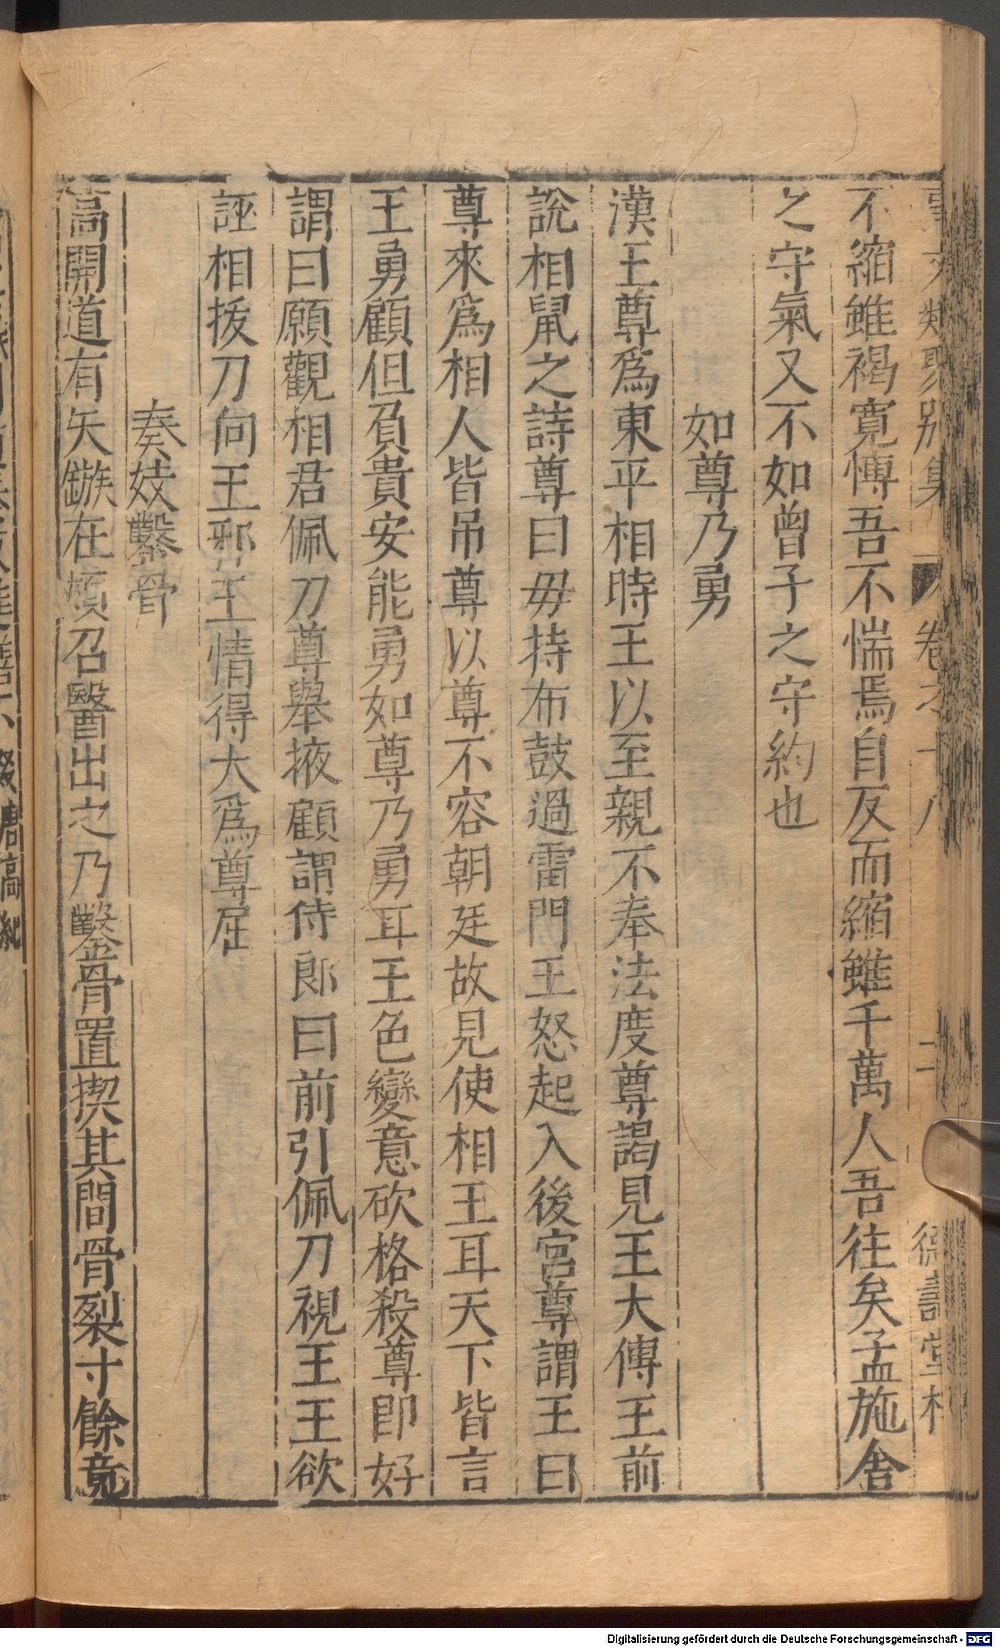 事文類聚別集 卷之十八 二 德壽堂梓
不縮雖褐寬愽吾不惴焉自反而縮雖千萬人吾往矣孟施舍
之守氣又不如曾子之守約也
如尊乃勇
漢王尊爲東平相時王以至親不奉法度尊謁見王大傅王前
說相鼠之詩尊曰毋持布鼓過雷門王怒起入後宮尊謂王曰
尊來爲相人皆吊尊以尊不容朝廷故見使相王耳天下皆言
王勇顧但負貴安能勇如尊乃勇耳王色變意砍格殺尊卽好
謂曰願觀相君佩刀尊舉掖顧謂侍郎曰前引佩刀視王王欲
誣相拔刀向王邪王情得大爲尊屈
奏妓鑿骨
高開道有矢鏃在頰召醫出之乃鑿骨置揳其間骨裂寸餘竟
Digitalisierung gefördert durch die Deutsche Forschungsgemeinschaft - DFG